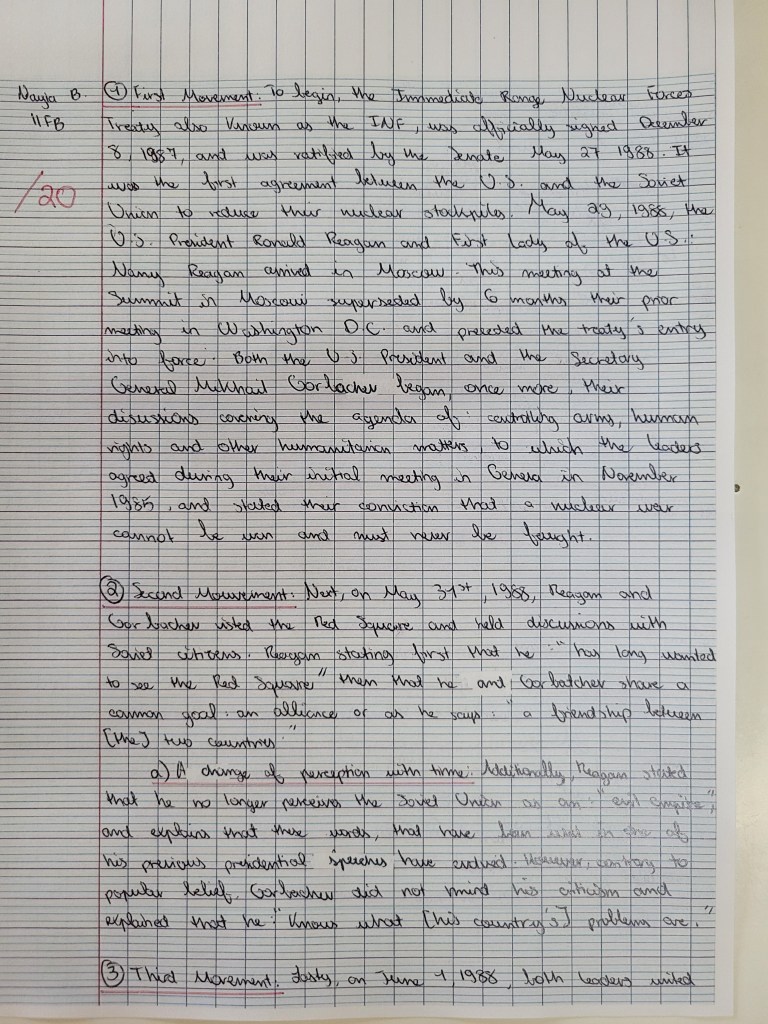 Nayja B.
11FB
/20
① First Movement: To begin, the Immediate Range Nuclear Forces
Treaty also known as the INF, was officially signed December
8, 1987, and was ratified by the Senate May 27 1988. It
was the first agreement between the U.S. and the Soviet
Union to reduce their nuclear stockpiles. May 29, 1988, the
U.S. President Ronald Reagan and First lady of the U.S.:
Nancy Reagan arrived in Moscow. This meeting at the
Summit in Moscow superseded by 6 months their prior
meeting in Washington D.C. and preceded the treaty's entry
into force. Both the U.S President and the Secretary
General Mikhail Gorbachev began, once more, their
disussions covering the agenda of: controlling arms, human
rights and other humanitarian matters, to which the leaders
agreed during their initial meeting in Geneva in November
1985, and stated their conviction that a nuclear war
cannot be won and must never be fought.
② Second Mouvement: Next, on May 31st, 1988, Reagan and
Gorbachev visted the Red Square and held discussions with
Soviet citizens. Reagan stating first that he: "has long wanted
to see the Red Square" then that he and Gorbatchev share a
common goal: an alliance or as he says: "a friendship between
[the] two countries."
a) A change of perception with time: Additionally, Reagan stated
that he no longer perceives the Soviet Union as an: "evil empire",
and explains that these words, that have been used in one of
his previous presidential speeches have evolved. However, contrary to
popular belief, Gorbachev did not mind his criticism and
explained that he: "Knows what [his country's] problems are."
③ Third Movement: Lasty, on June 1, 1988, both leaders united